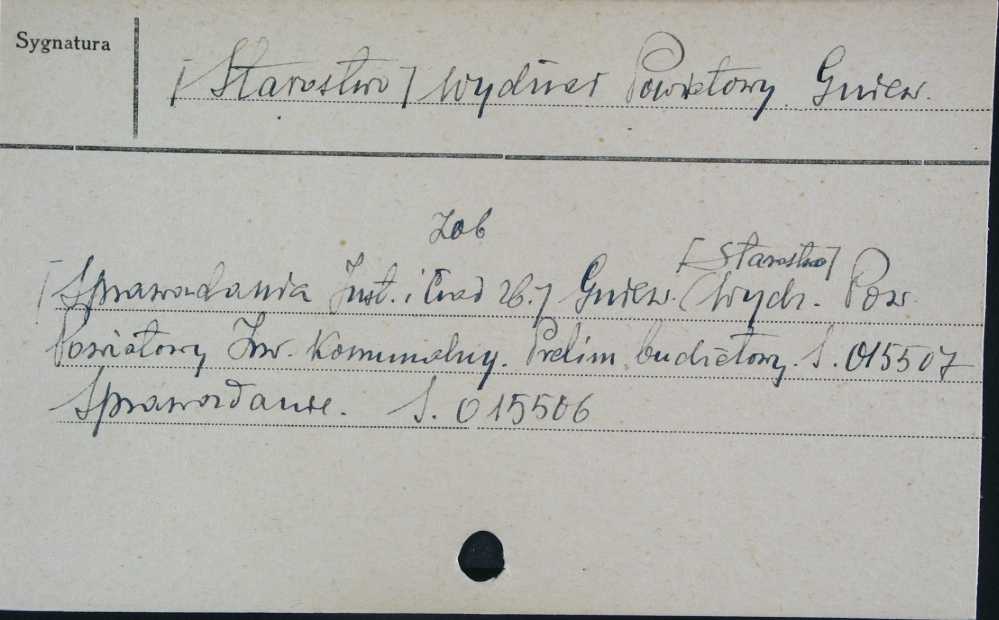 Sygnatura
[Starostwo] Wydział Powiatowy Gniew.
Zob
[Sprawozdania Inst. i Urzęd Zb.] Gniew. [Starostwo] Wydz. Pow.
Powiatowy Zw. Komunalny. Prelim. budżetowy. S. 015507
Sprawozdanie. S. 015506